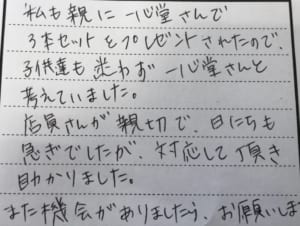 私も親に一心堂さんで
3本セットをプレゼントされたので、
子供達も迷わず一心堂さんと
考えていました。
店員さんが親切で、日にちも
急ぎでしたが、対応して頂き
助かりました。
また機会がありましたら、お願いしま